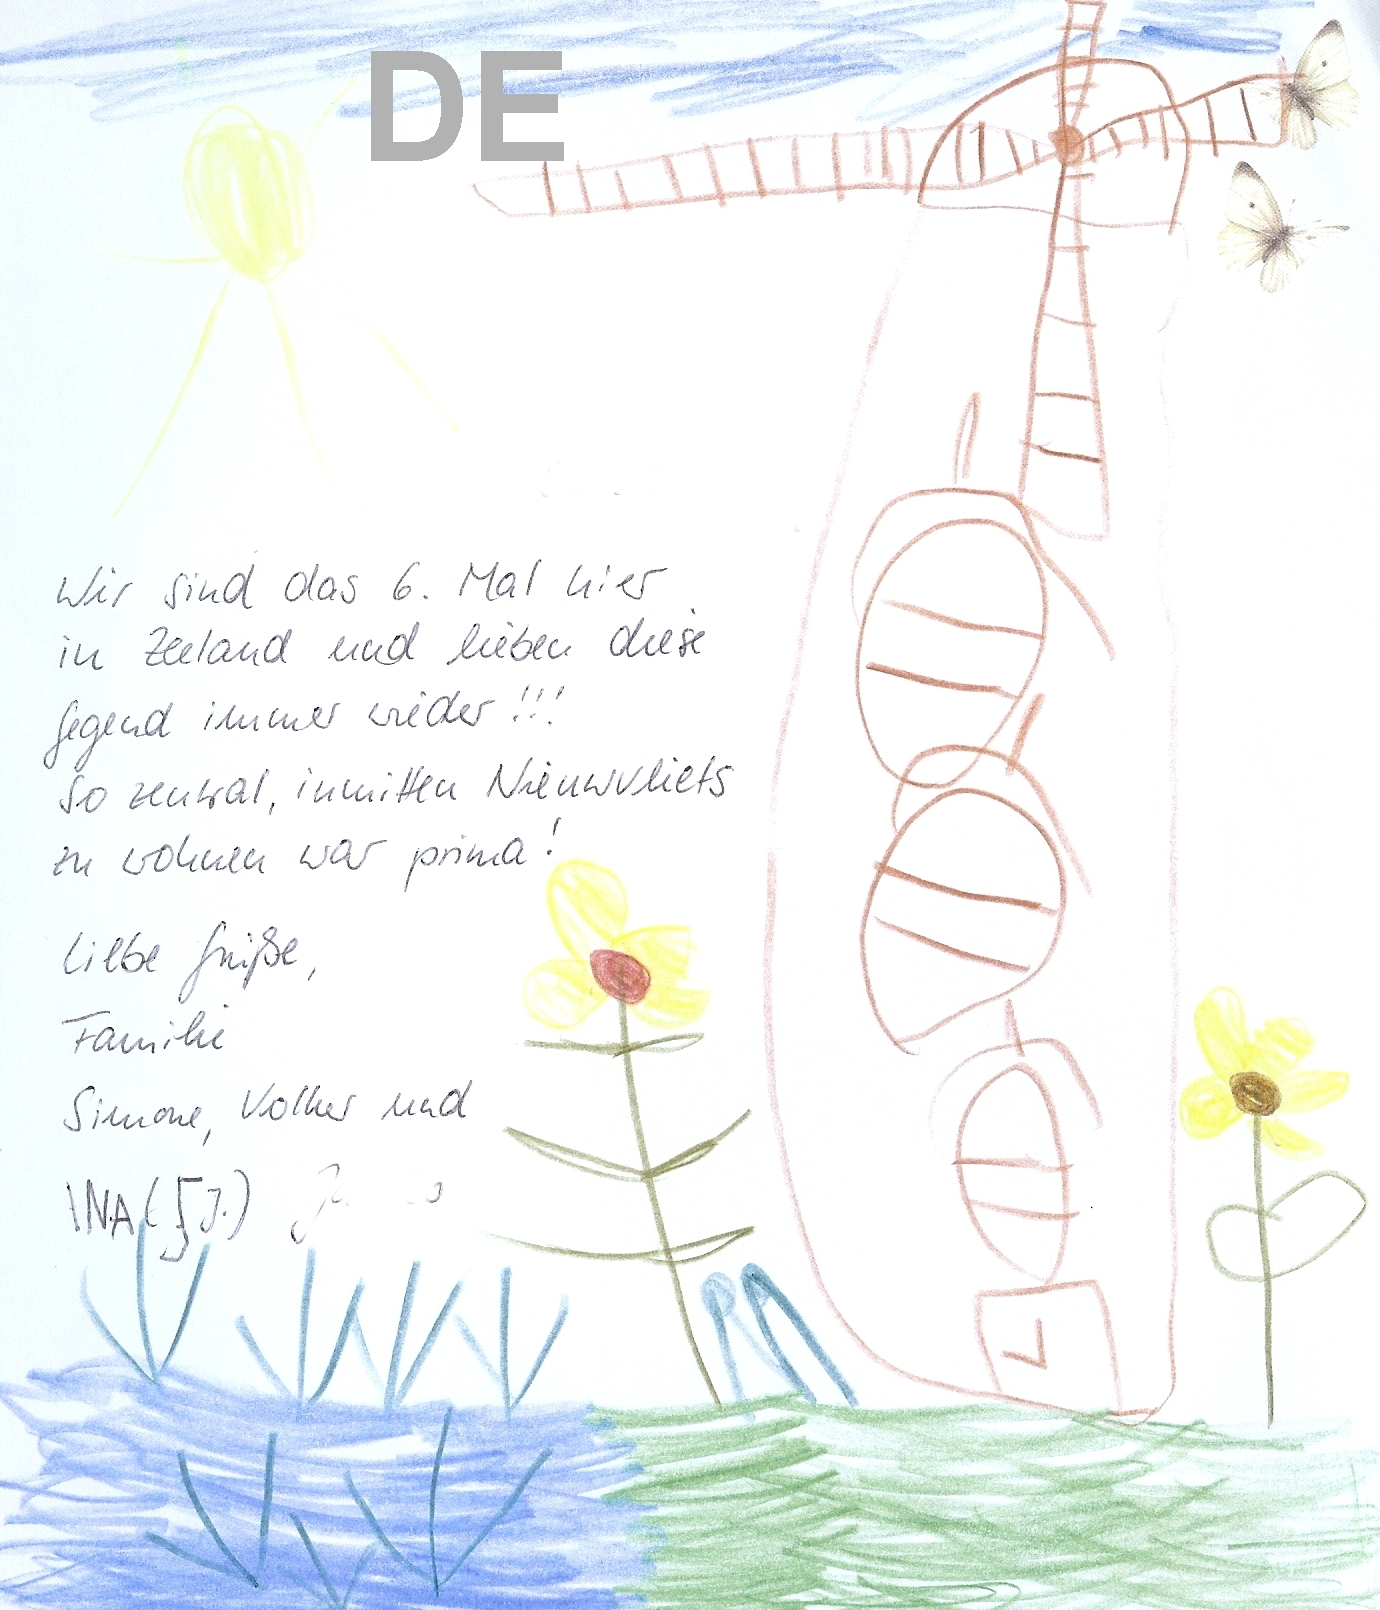 DE
Wir sind das 6. Mal hier
in Zeeland und lieben diese
Gegend immer wieder!!!
So zentral, inmitten Nieuwvliets
zu wohnen war prima!
Liebe Grüße,
Familie
Simone, Volker und
INA (5J.)